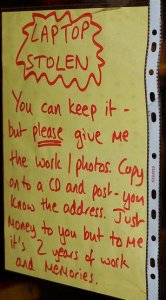 LAPTOP
STOLEN
You can keep it -
but please give me
the work / photos. Copy
on to a CD and post - you
know the address. Just
money to you but to me
it's 2 years of work
and memories.